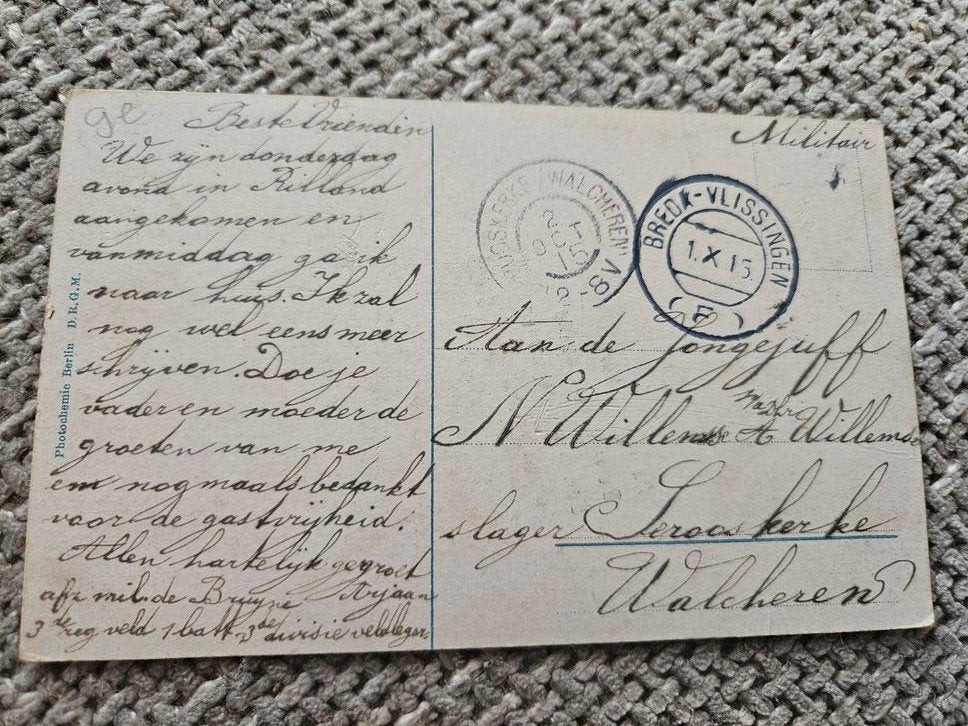 ge
Beste Vriendin
We zijn donderdag
avond in Rilland
aangekomen en
vanmiddag ga ik
naar huis. Ik zal
nog wel eens meer
schrijven. Doe je
vader en moeder de
groeten van me
en nogmaals bedankt
voor de gastvrijheid.
Allen hartelijk gegroet
afz mil. de Bruyne Arjaan
3de reg veld 1 batt 3de divisie veldleger
Photochemie Berlin D.R.G.M.
Militair
WALCHEREN
8V
BREDA-VLISSINGEN
1.X 15
Aan de Jongejuff
N Willemse A Willemse
slager Serooskerke
Walcheren